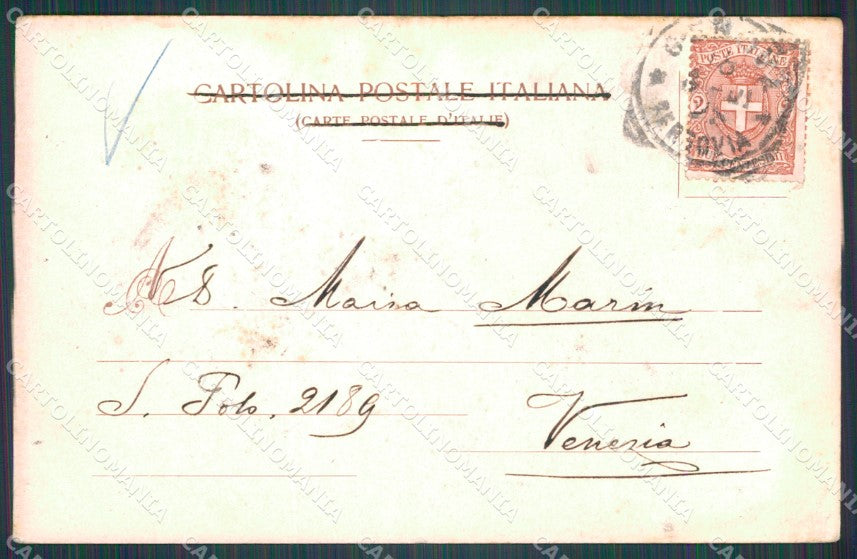 CARTOLINA POSTALE ITALIANA
(CARTE POSTALE D'ITALIE)
POSTE ITALIANE
2
FERROVIA
N. D. Maria Marin
S. Polo. 2189
Venezia
CARTOLINOMANIA